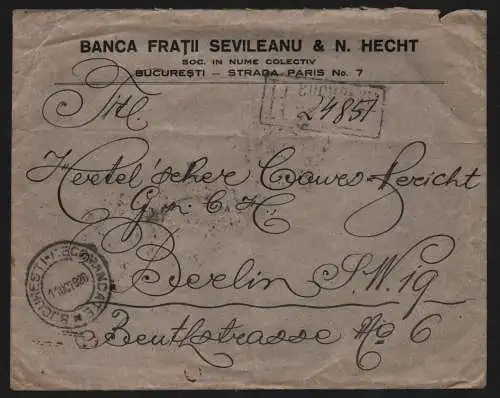 BANCA FRAȚII SEVILEANU & N. HECHT
SOC. IN NUME COLECTIV
BUCUREȘTI — STRADA PARIS No. 7
24851
Tit.
Hertel'scher Cours-Bericht
G.m.b.H.
Berlin S.W. 19
Beuthstrasse No 6
BUCUREȘTI * RECOMANDATE